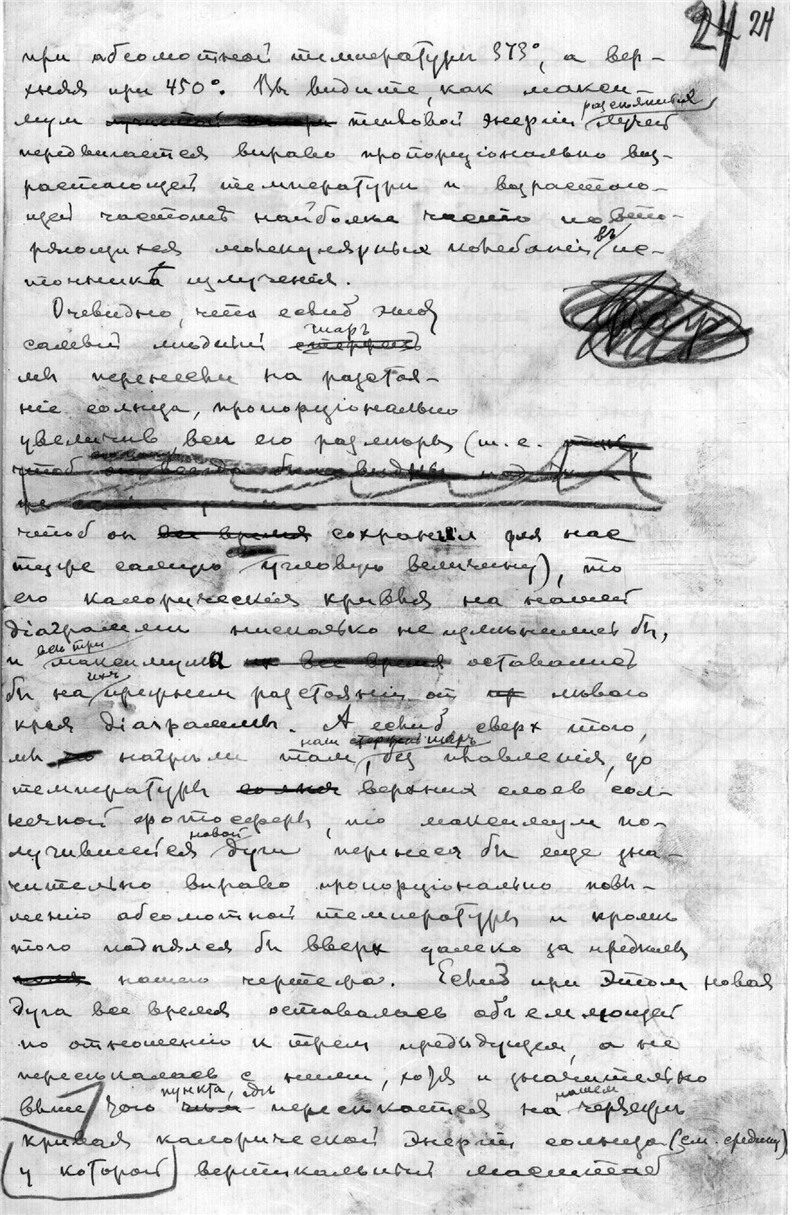 24 24
при абсолютной температуры 373°, а вер-
хняя при 450°. Вы видите, как макси-
мум тепловой энергіи лучей
передвигается вправо пропорціонально воз-
растающей температуры и возрастаю-
щей частотѣ наиболѣе часто повто-
ряющихся молекулярныхъ колебаній въ ис-
точникѣ излученія.
Очевидно, что еслиб этот
шаръ
мы перенесли на разстоя-
ніе солнца, пропорціонально
увеличив всѣ его размѣры (т. е.
чтоб он все время сохранил для нас
туже самую угловую величину), то
его калорическія кривыя на нашей
діаграммы нисколько не измѣнились бы,
всѣ три
и максимума все время оставались
бы на прежнем разстояніи от лѣваго
края діаграммы. А еслиб сверх того,
наш шаръ
мы нагрѣли там, без плавленія, до
температуры верхних слоев сол-
нечной фотосферы, то максимум по-
новой
лучившейся дуги перенесся бы еще зна-
чительно вправо пропорціонально повы-
шенію абсолютной температуры и кромѣ
того поднялся бы вверх далеко за предѣлы
нашего чертежа. Еслиб при этом новая
дуга все время оставалась объемлющей
по отношенію к трем предыдущим, а не
пересѣкалась с ними, хотя и значительно
пункта, гдѣ нашем
выше того чѣм пересѣкается на чертежѣ
кривая калорической энергіи солнца (см. средину)
у которой вертикальный масштаб